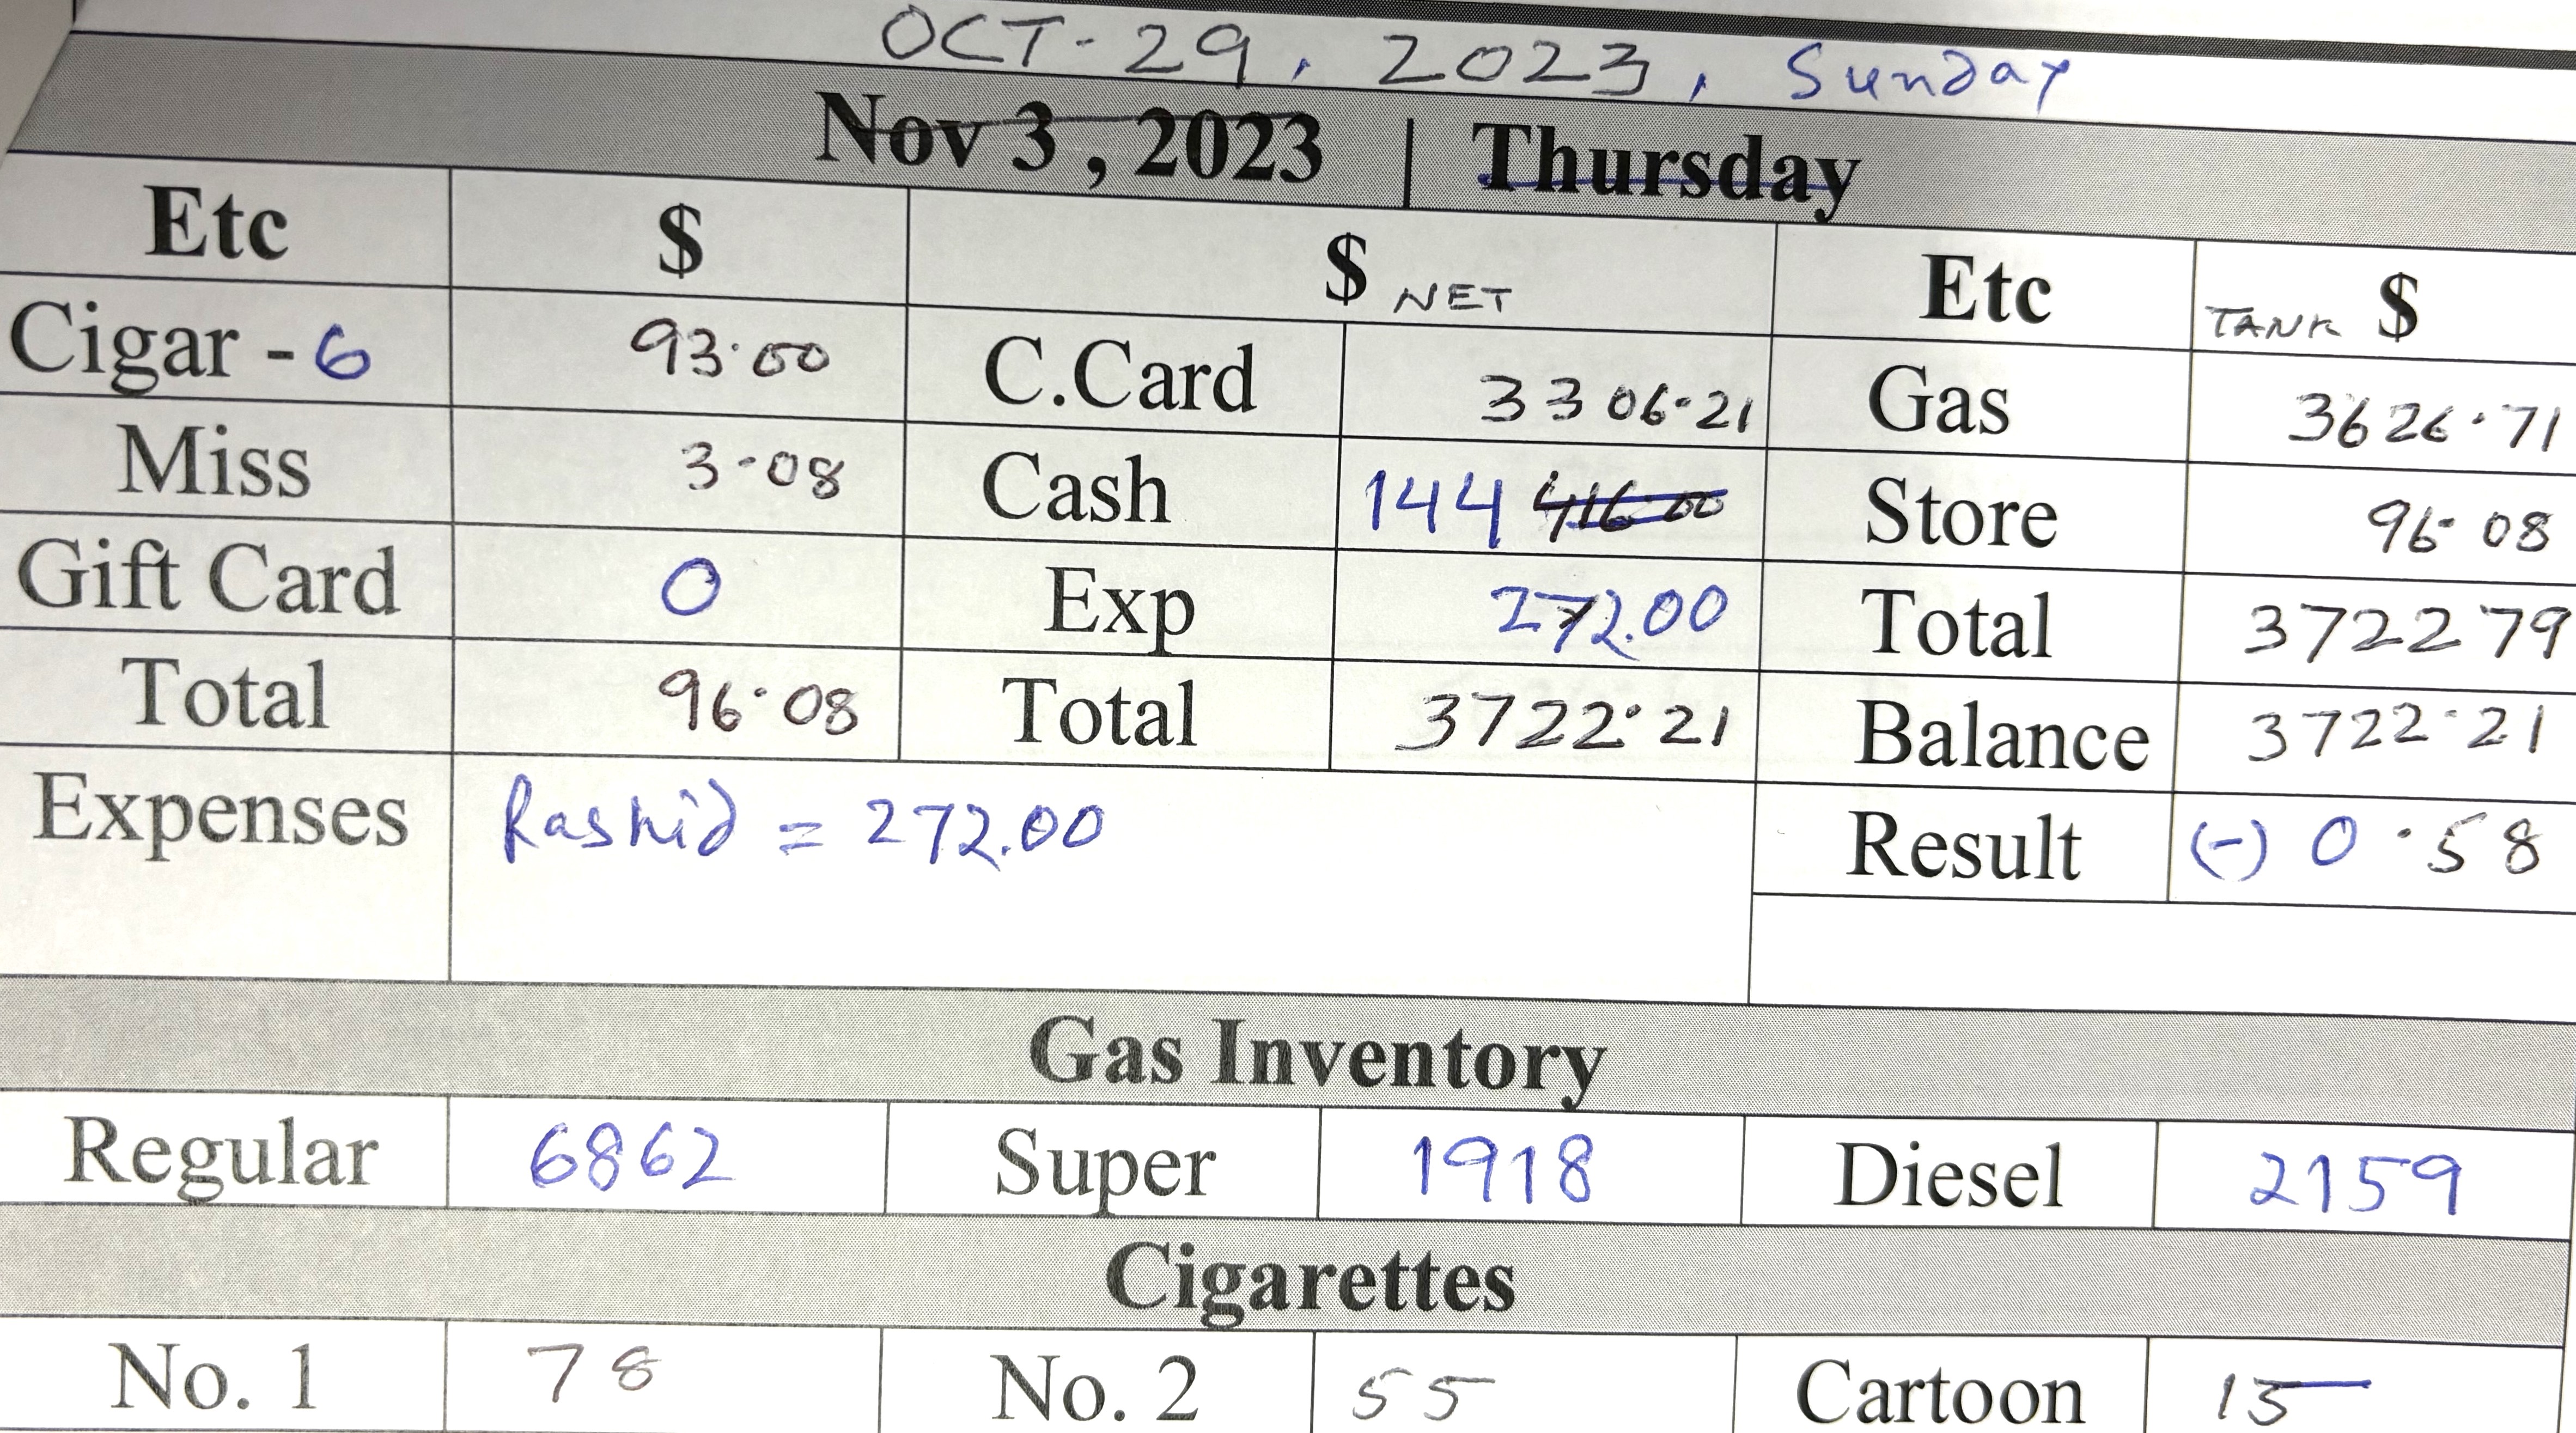 OCT-29, 2023, Sunday
Nov 3, 2023 | Thursday
Etc $ $ NET Etc TANK $
Cigar - 6 93.00 C.Card 3306.21 Gas 3626.71
Miss 3-08 Cash 144 416.00 Store 96.08
Gift Card 0 Exp 272.00 Total 372279
Total 96.08 Total 3722.21 Balance 3722.21
Expenses Rashid = 272.00 Result (-) 0.58
Gas Inventory
Regular 6862 Super 1918 Diesel 2159
Cigarettes
No. 1 78 No. 2 55 Cartoon 15